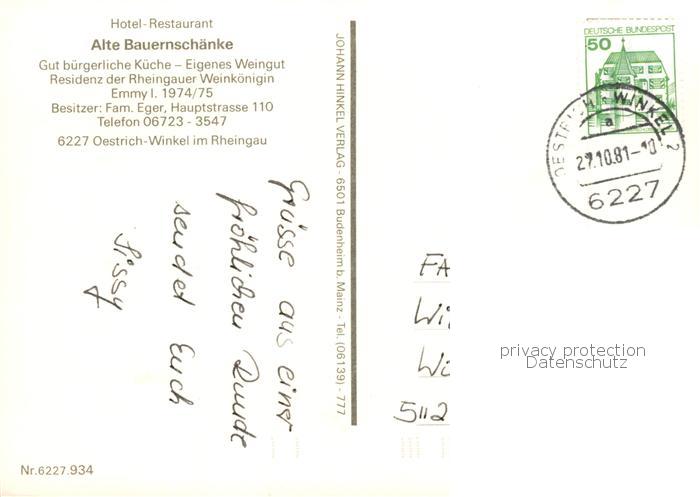 Hotel-Restaurant
Alte Bauernschänke
Gut bürgerliche Küche – Eigenes Weingut
Residenz der Rheingauer Weinkönigin
Emmy I. 1974/75
Besitzer: Fam. Eger, Hauptstrasse 110
Telefon 06723 - 3547
6227 Oestrich-Winkel im Rheingau
Grüsse aus einer
fröhlichen Runde
sendet Euch
Sissy
Nr.6227.934
JOHANN HINKEL VERLAG - 6501 Budenheim b. Mainz - Tel. (06139) - 777
DEUTSCHE BUNDESPOST
50
OESTRICH-WINKEL 2
a
27.10.81-10
6227
FA
Wi
Wi
5112
privacy protection
Datenschutz